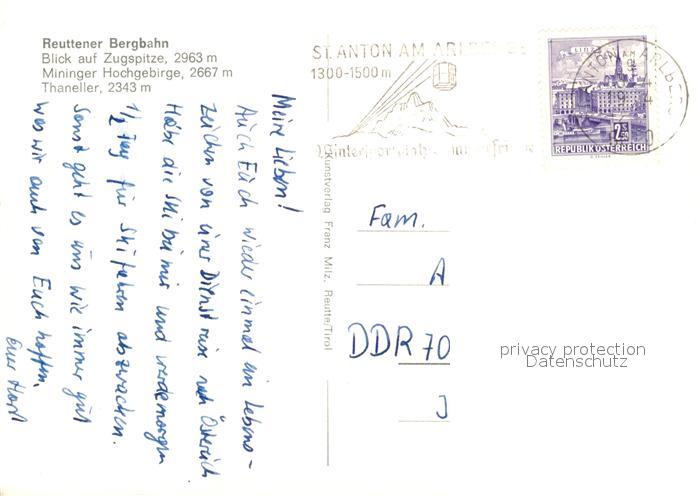 Reuttener Bergbahn
Blick auf Zugspitze, 2963 m
Mininger Hochgebirge, 2667 m
Thaneller, 2343 m
Meine Lieben!
Auch Euch wieder einmal ein Lebens-
zeichen von einer Dienstreise nach Österreich
Habe die Ski bei mir und werde morgen
1/2 Tag für Skifahren abzwacken.
Sonst geht es uns wie immer gut
was wir auch von Euch hoffen.
Euer Horst
Kunstverlag Franz Milz, Reutte/Tirol
ST. ANTON AM ARLBERG
1300-1500 m
LINZ
2.50
REPUBLIK ÖSTERREICH
ST. ANTON AM ARLBERG
Fam.
A
DDR 70
J
privacy protection
Datenschutz